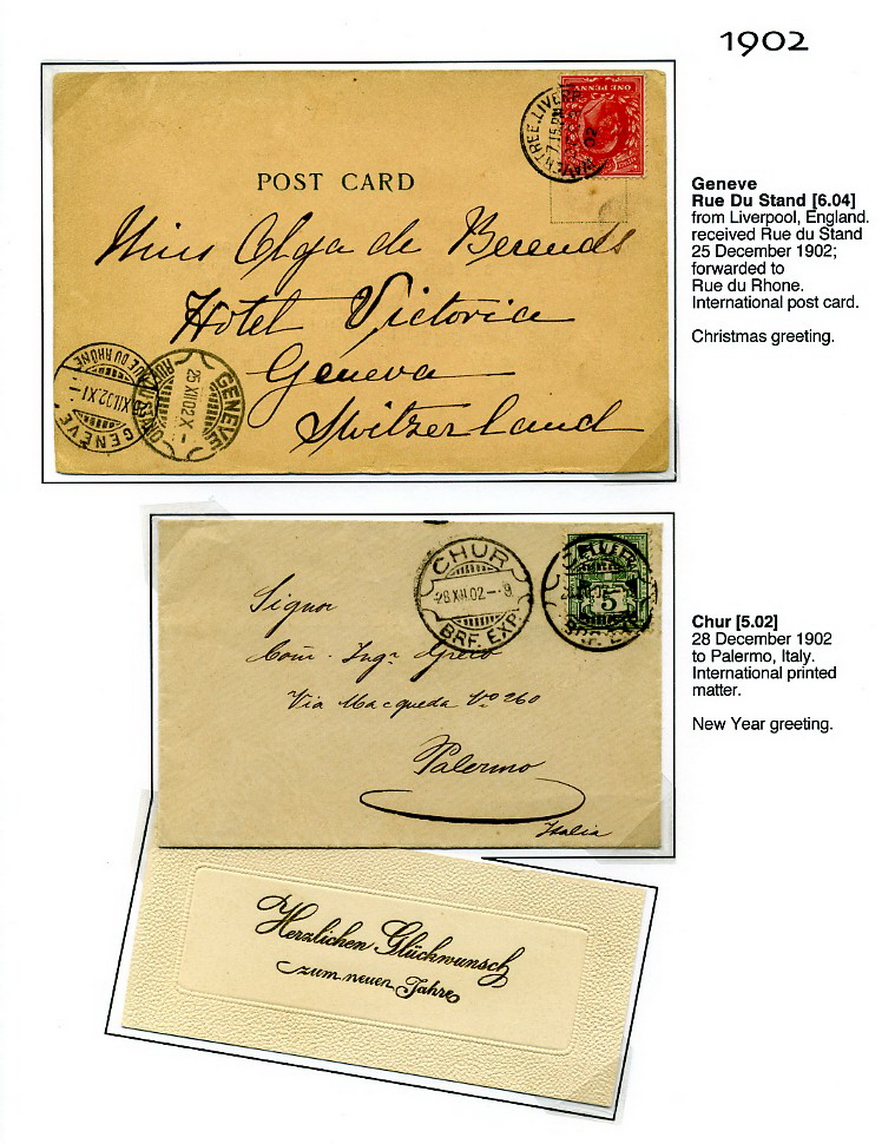 1902
POST CARD
ONE PENNY
7.15 PM
02
Miss Olga de Berends
Hotel Victoria
Geneva
Switzerland
GENÈVE
RUE DU RHÔNE
XII.02.XI-
GENÈVE
RUE DU STAND
25 XII 02 X-
Geneve
Rue Du Stand [6.04]
from Liverpool, England.
received Rue du Stand
25 December 1902;
forwarded to
Rue du Rhone.
International post card.
Christmas greeting.
CHUR
28 XII.02--9
BRF. EXP.
5
Signor
Com. Ingr Greco
Via Macqueda No 260
Palermo
Italia
Chur [5.02]
28 December 1902
to Palermo, Italy.
International printed
matter.
New Year greeting.
Herzlichen Glückwunsch
zum neuen Jahre